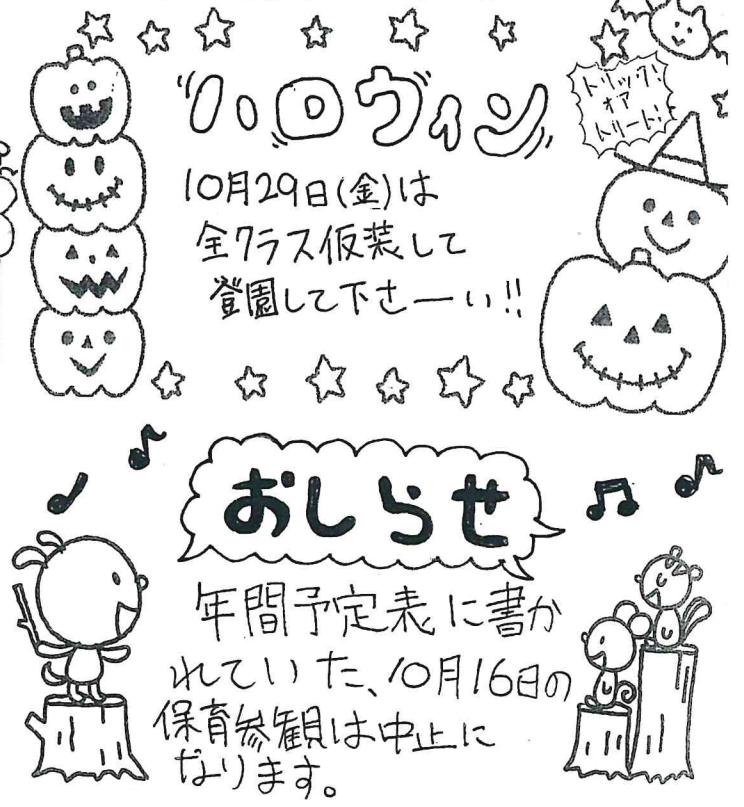 ハロウィン
トリック!
オア
トリート!
10月29日(金)は
全クラス仮装して
登園して下さーい!!
おしらせ
年間予定表に書か
れていた、10月16日の
保育参観は中止に
なります。